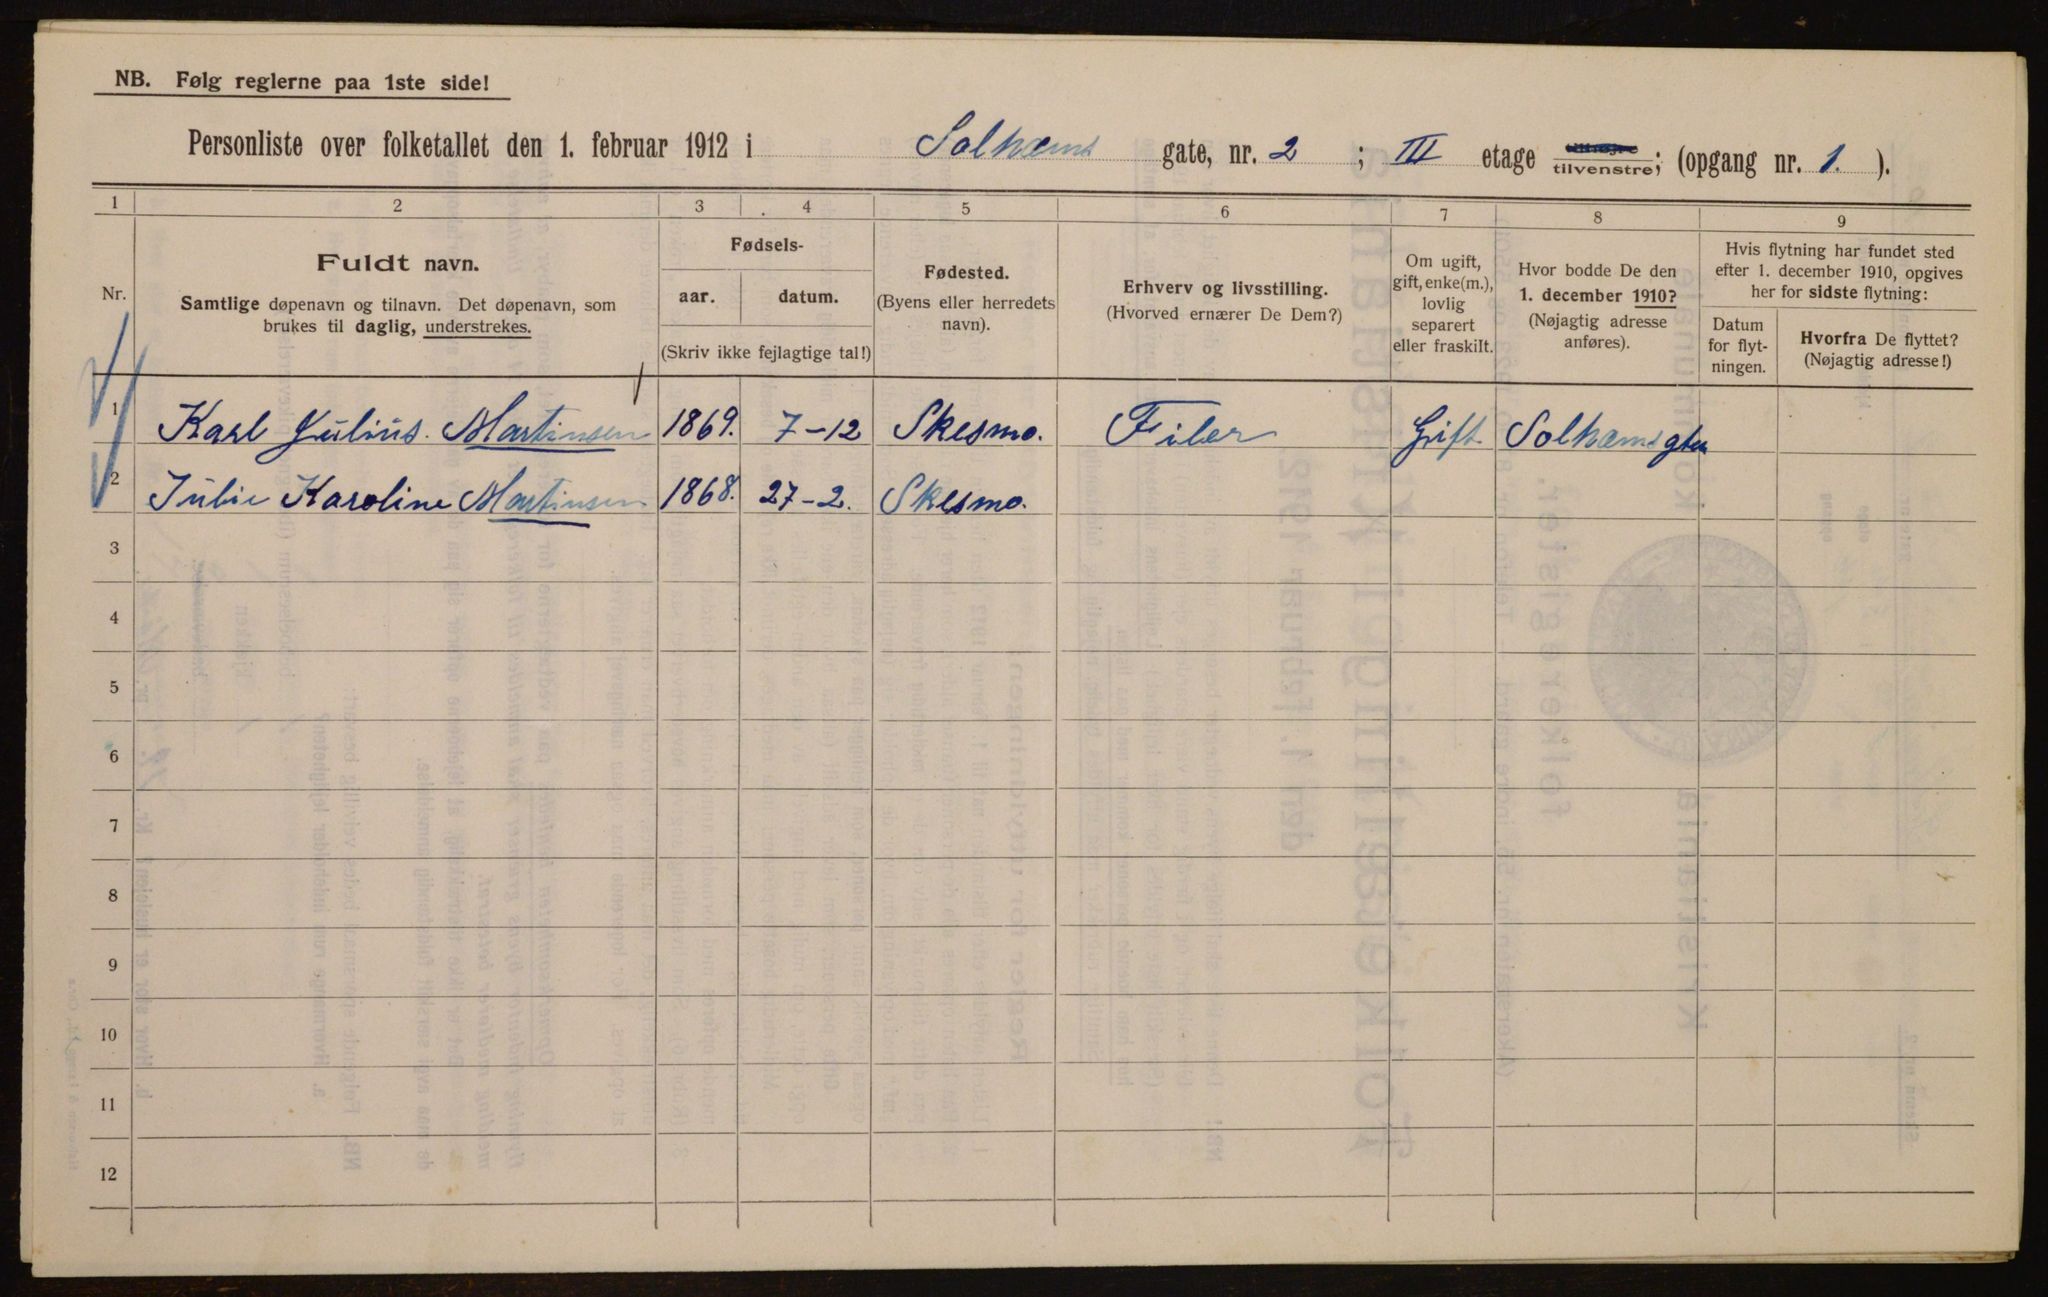 NB. Følg reglerne paa 1ste side!
Personliste over folketallet den 1. februar 1912 i Solhæms gate, nr. 2 ; III etage tilhøire tilvenstre; (opgang nr. 1. ).
1 2 3 4 5 6 7 8 9
Nr.
Fuldt navn.
Samtlige døpenavn og tilnavn. Det døpenavn, som
brukes til daglig, understrekes.
Fødsels-
aar. datum.
(Skriv ikke fejlagtige tal!)
Fødested.
(Byens eller herredets
navn).
Erhverv og livsstilling.
(Hvorved ernærer De Dem?)
Om ugift,
gift, enke(m.),
lovlig
separert
eller fraskilt.
Hvor bodde De den
1. december 1910?
(Nøjagtig adresse
anføres).
Hvis flytning har fundet sted
efter 1. december 1910, opgives
her for sidste flytning:
Datum
for flyt-
ningen.
Hvorfra De flyttet?
(Nøjagtig adresse!)
1 Karl Julius. Martinsen 1869. 7-12 Skesmo. Filer Gift. Solhæmsgten
2 Julie Karoline Martinsen 1868. 27-2. Skesmo.
3
4
5
6
7
8
9
10
11
12